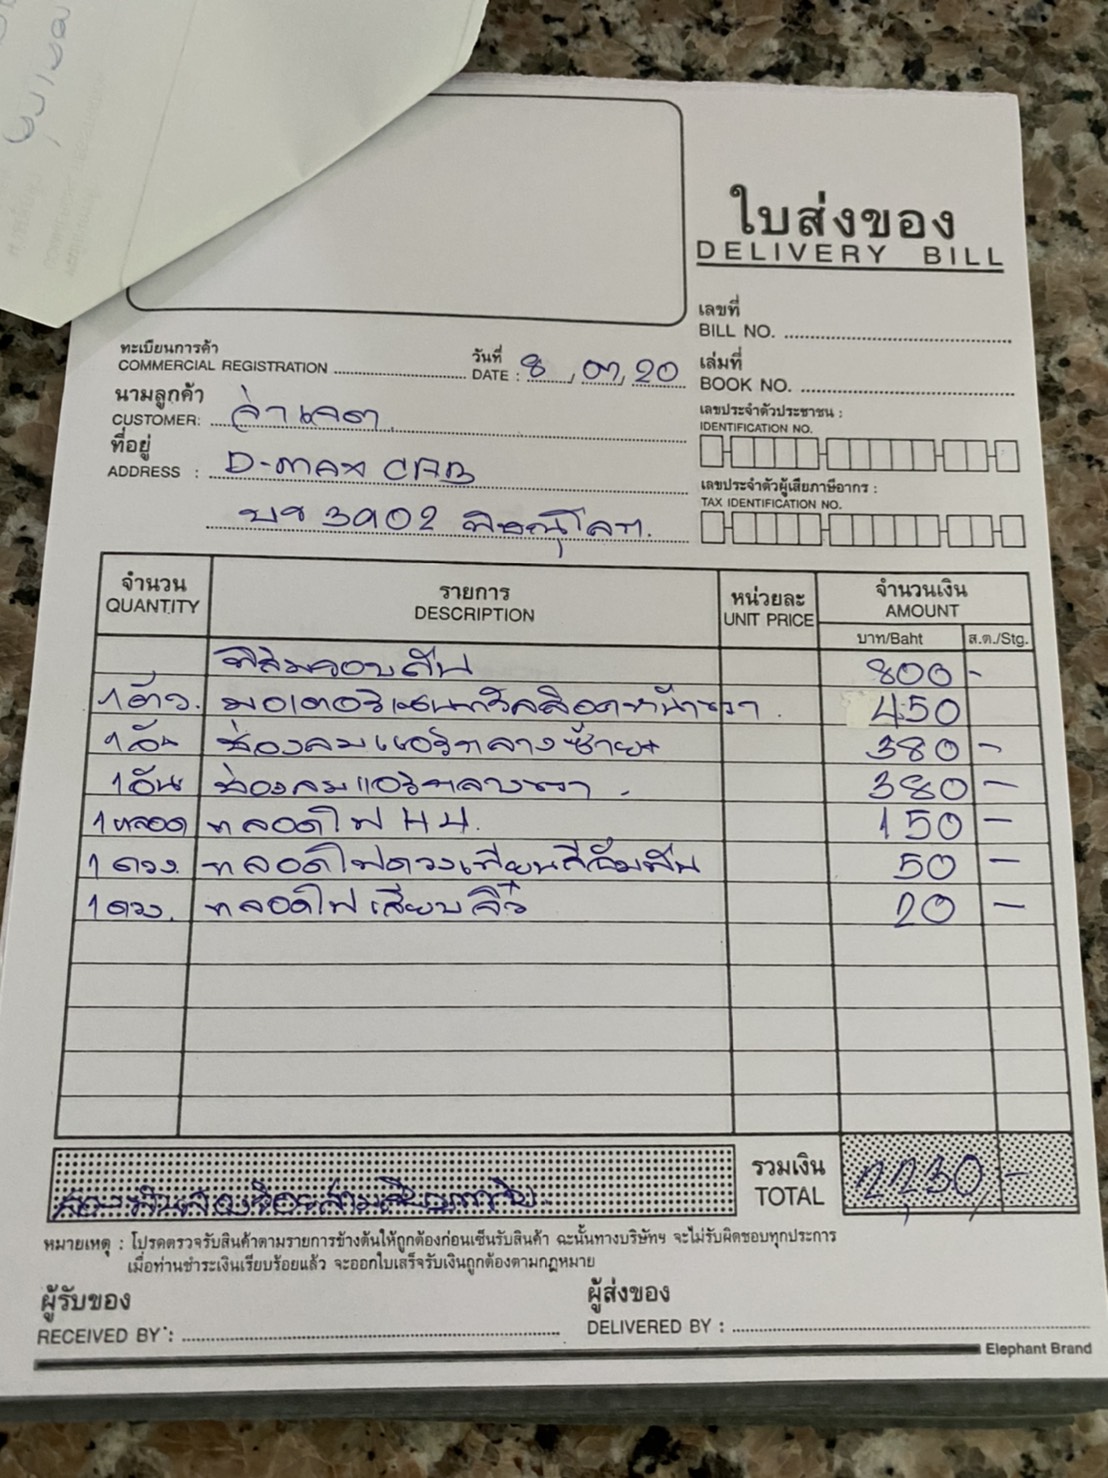 ใบส่งของ
DELIVERY BILL
เลขที่
BILL NO.
ทะเบียนการค้า
COMMERCIAL REGISTRATION
วันที่
DATE : 8 , 07, 20
เล่มที่
BOOK NO.
นามลูกค้า
CUSTOMER: จ่าเจต
เลขประจำตัวประชาชน :
IDENTIFICATION NO.
ที่อยู่
ADDRESS : D-max CAB
เลขประจำตัวผู้เสียภาษีอากร :
TAX IDENTIFICATION NO.
บฯ 3902 พิษณุโลก.
จำนวน รายการ หน่วยละ จำนวนเงิน
QUANTITY DESCRIPTION UNIT PRICE AMOUNT
บาท/Baht ส.ต./Stg.
ฟิล์มรอบคัน 800 -
1 ตัว. มอเตอร์ หน้าขวา 450
1 อัน ช่องลมแอร์กลางซ้าย 380 -
1 อัน ช่องลมแอร์กลางขวา 380 -
1 หลอด หลอดไฟ H4. 150 -
1 ดวง. หลอดไฟดวงเทียนสีอัมพัน 50 -
1 ดวง. หลอดไฟเสียบจิ๋ว 20 -
รวมเงิน
TOTAL 2,230 -
หมายเหตุ : โปรดตรวจรับสินค้าตามรายการข้างต้นให้ถูกต้องก่อนเซ็นรับสินค้า ฉะนั้นทางบริษัทฯ จะไม่รับผิดชอบทุกประการ
เมื่อท่านชำระเงินเรียบร้อยแล้ว จะออกใบเสร็จรับเงินถูกต้องตามกฎหมาย
ผู้รับของ
RECEIVED BY :
ผู้ส่งของ
DELIVERED BY :
Elephant Brand